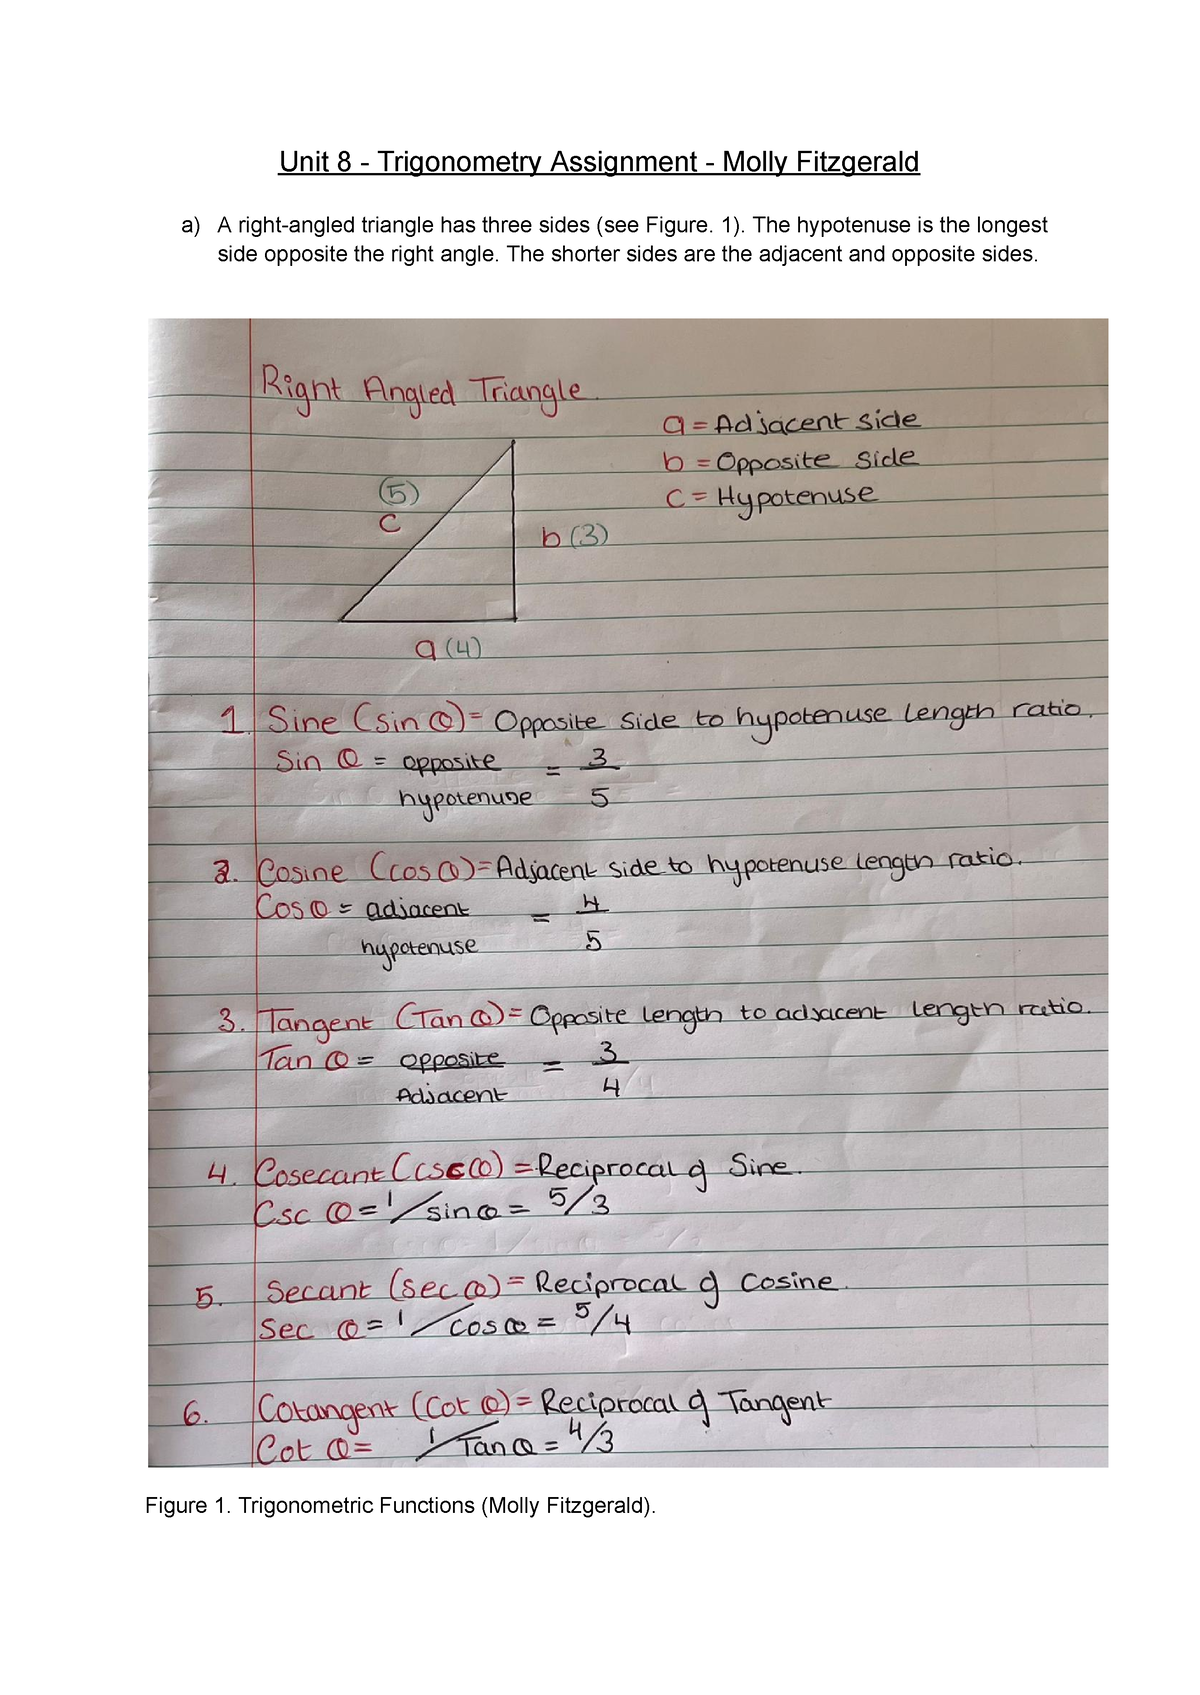 Unit 8 - Trigonometry Assignment - Molly Fitzgerald
a) A right-angled triangle has three sides (see Figure. 1). The hypotenuse is the longest
side opposite the right angle. The shorter sides are the adjacent and opposite sides.
Right Angled Triangle.
a = Adjacent side
b = Opposite side
c = Hypotenuse
(5)
c
b (3)
a (4)
1. Sine (sin θ) = Opposite side to hypotenuse length ratio.
Sin θ = opposite = 3
hypotenuse 5
2. Cosine (cos θ) = Adjacent side to hypotenuse length ratio.
Cos θ = adjacent = 4
hypotenuse 5
3. Tangent (Tan θ) = Opposite length to adjacent length ratio.
Tan θ = opposite = 3
Adjacent 4
4. Cosecant (csc θ) = Reciprocal of Sine.
Csc θ = 1/sin θ = 5/3
5. Secant (sec θ) = Reciprocal of cosine.
Sec θ = 1/cos θ = 5/4
6. Cotangent (Cot θ) = Reciprocal of Tangent
Cot θ = 1/Tan θ = 4/3
Figure 1. Trigonometric Functions (Molly Fitzgerald).